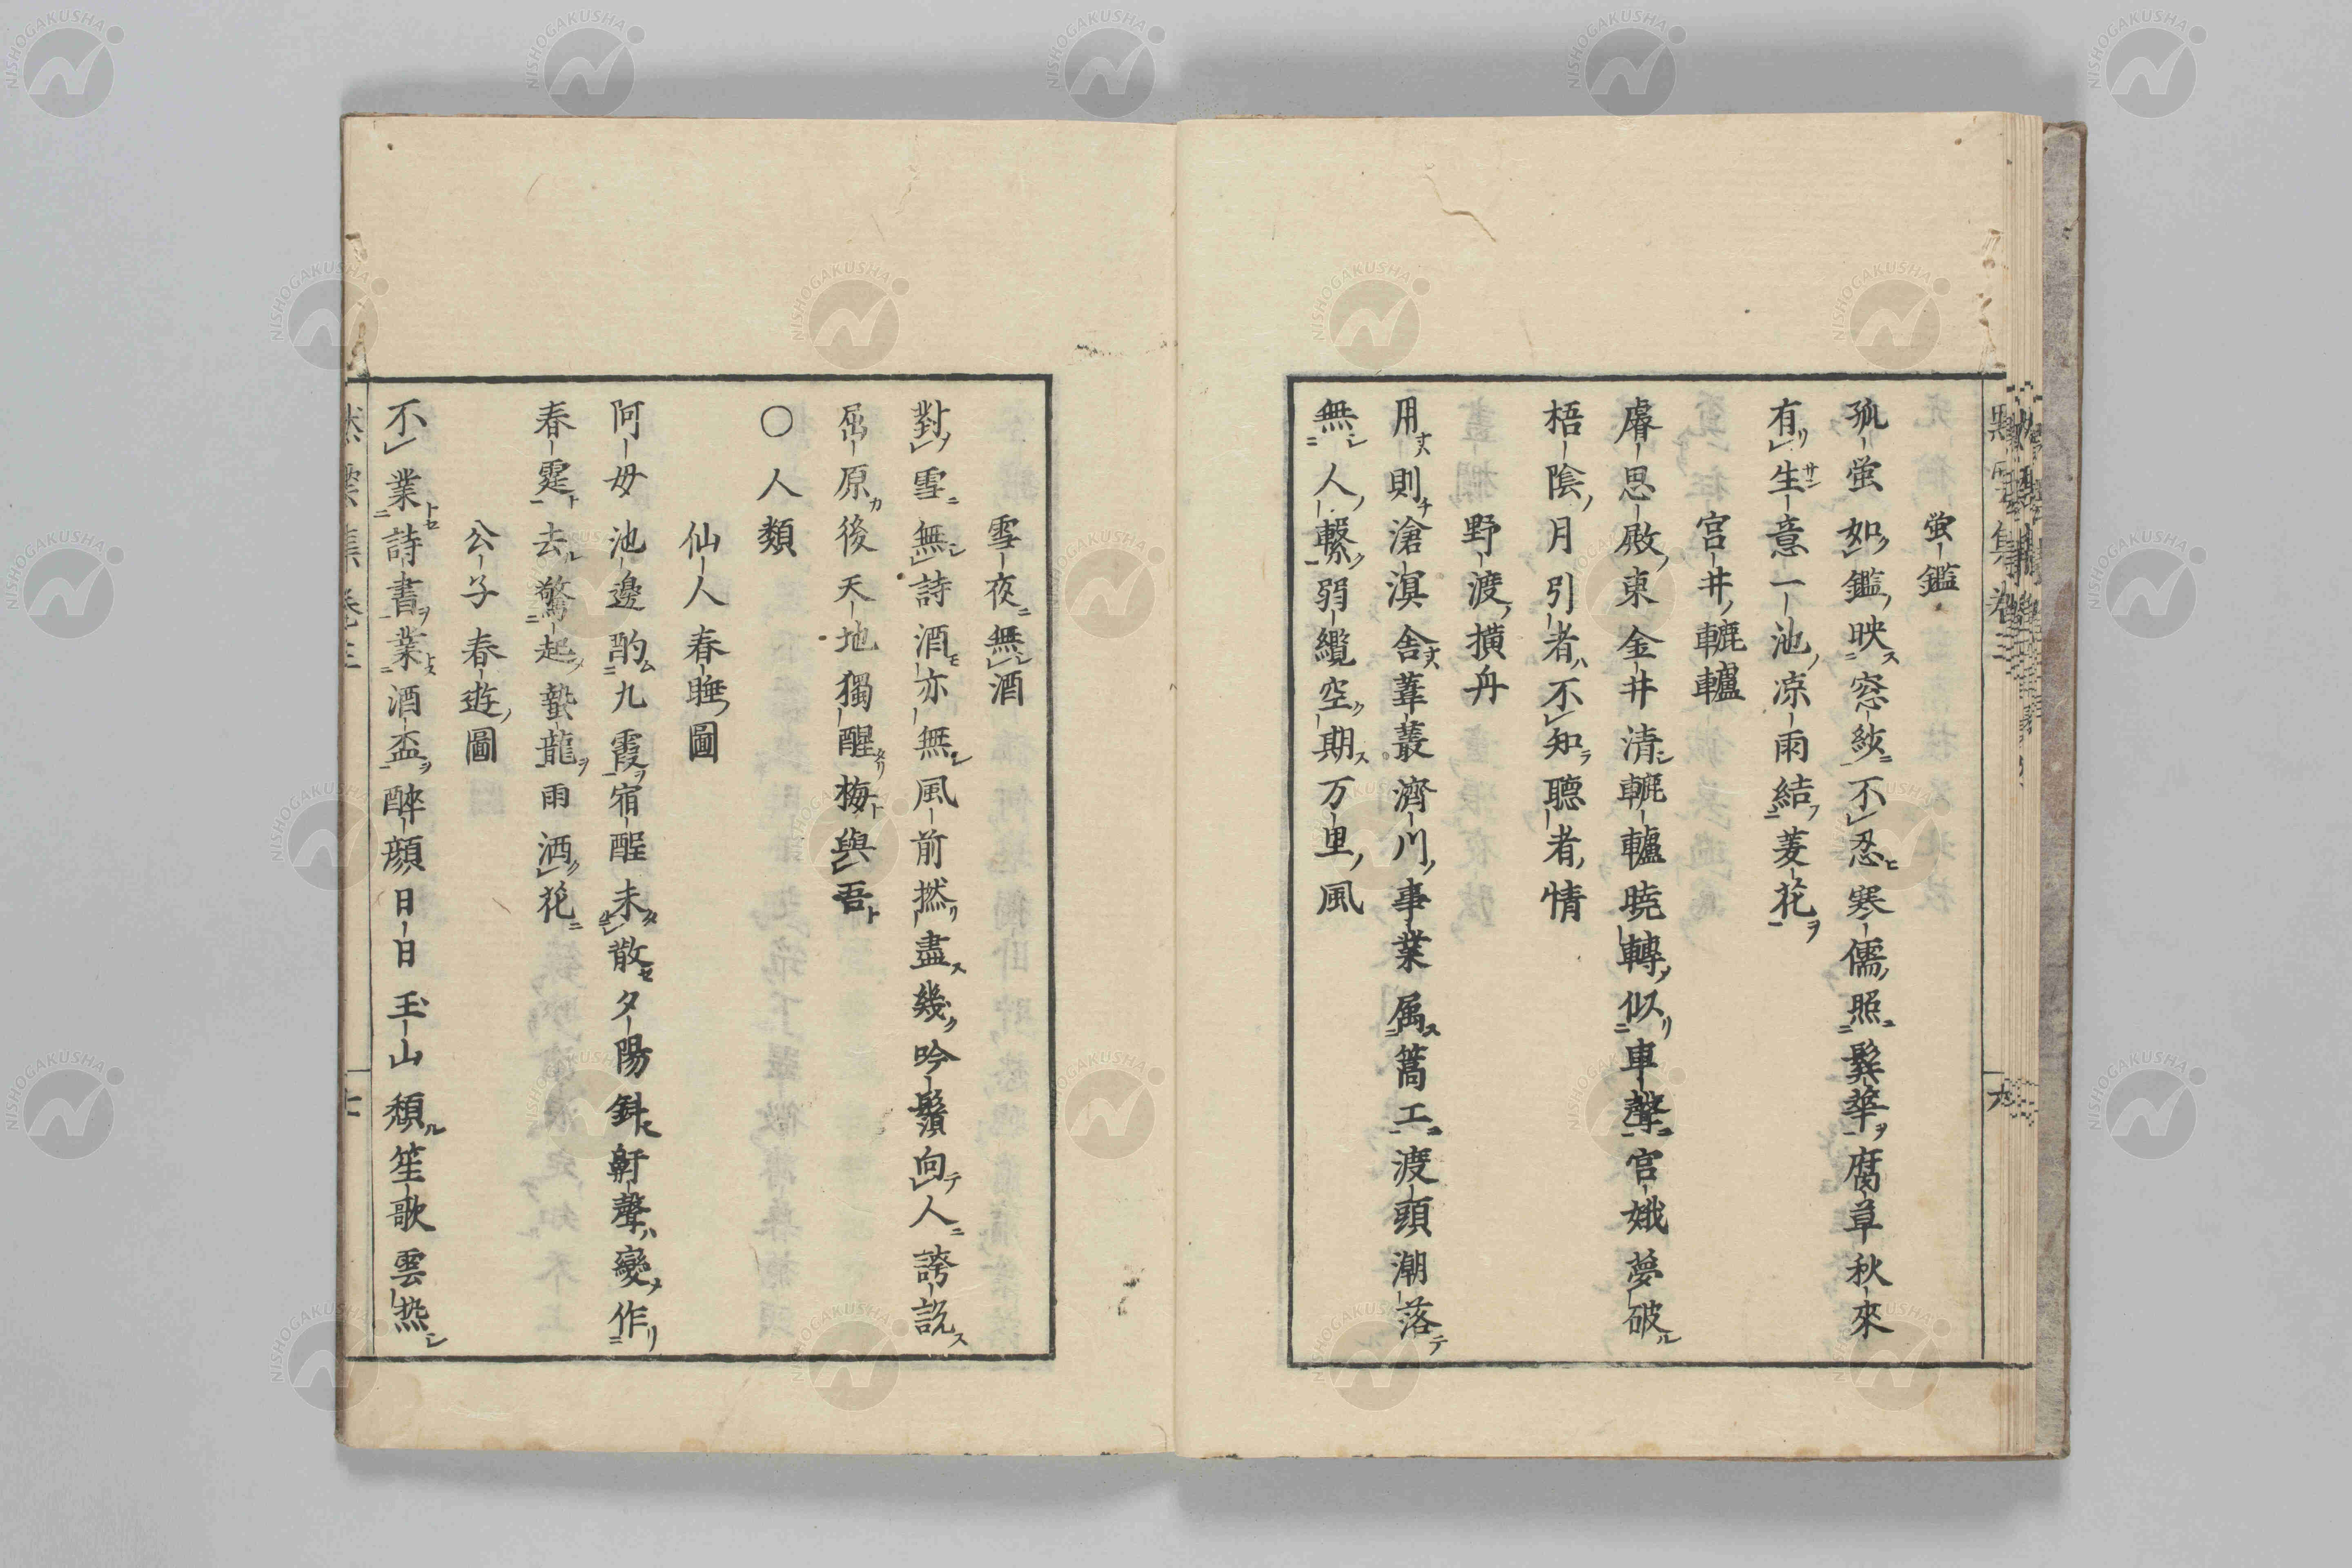 蛍鑑
孤蛍如鑑映窓紗不忍寒儒照鬂華腐草秋來
有生意一池凉雨結菱花
宮井轆轤
睿思殿東金井清轆轤暁轉似車聲宮娥夢破
梧陰月引者不知聴者情
野渡横舟
用則滄溟舎葦叢濟川事業属篙工渡頭潮落
無人繋弱纜空期万里風
雪夜無酒
對雪無詩酒亦無風前撚盡幾吟鬚向人誇説
屈原後天地獨醒梅與吾
○人類
仙人春睡圖
阿母池邊酌九霞宿酲未散夕陽斜鼾聲變作
春霆去驚起蟄龍雨洒花
公子春遊圖
不業詩書業酒盃醉顔日日玉山頽笙歌雲热